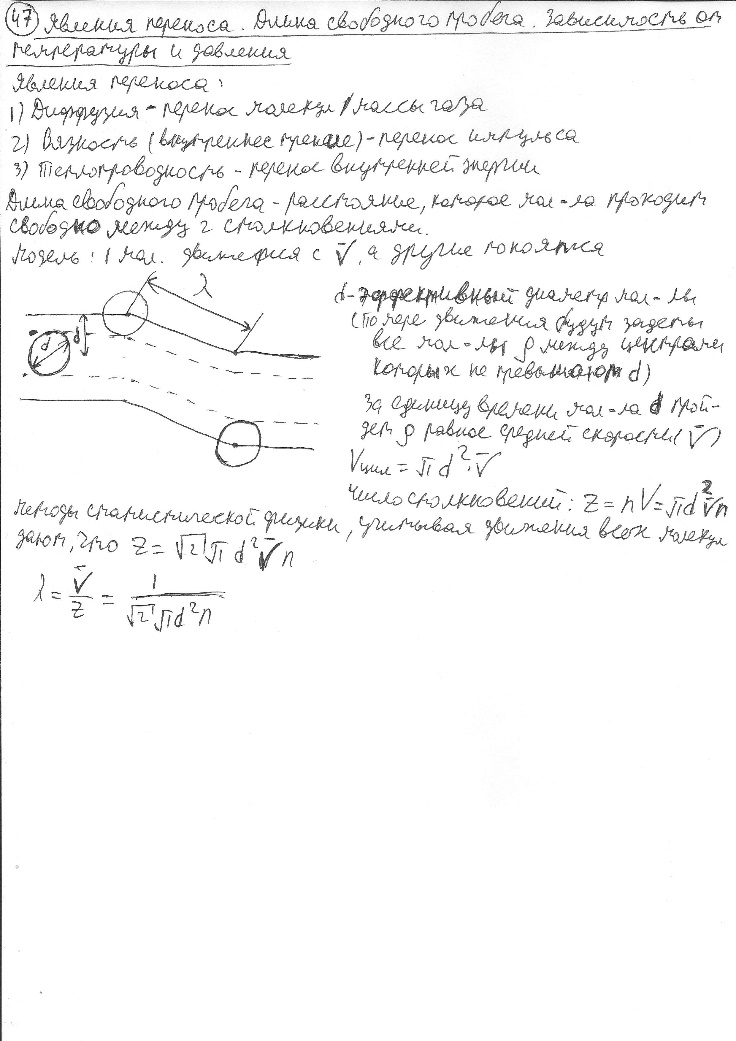 47 Явления переноса. Длина свободного пробега. Зависимость от
температуры и давления
Явления переноса:
1) Диффузия - перенос молекул / массы газа
2) Вязкость (внутреннее трение) - перенос импульса
3) Теплопроводность - перенос внутренней энергии
Длина свободного пробега - расстояние, которое мол-ла проходит
свободно между 2 столкновениями.
Модель: 1 мол. движется с v̄, а другие покоятся
λ
d
d
d - эффективный диаметр мол-лы
(По мере движения будут задеты
все мол-лы ρ между центрами
которых не превышают d)
За единицу времени мол-ла d прой-
дет ρ равное средней скорости (v̄)
Vцил = πd²·v̄
Число столкновений: z = nV = πd²v̄n
Методы статистической физики, учитывая движения всех молекул
дают, что z = √2 πd²v̄n
λ = v̄/z = 1/(√2 πd²n)